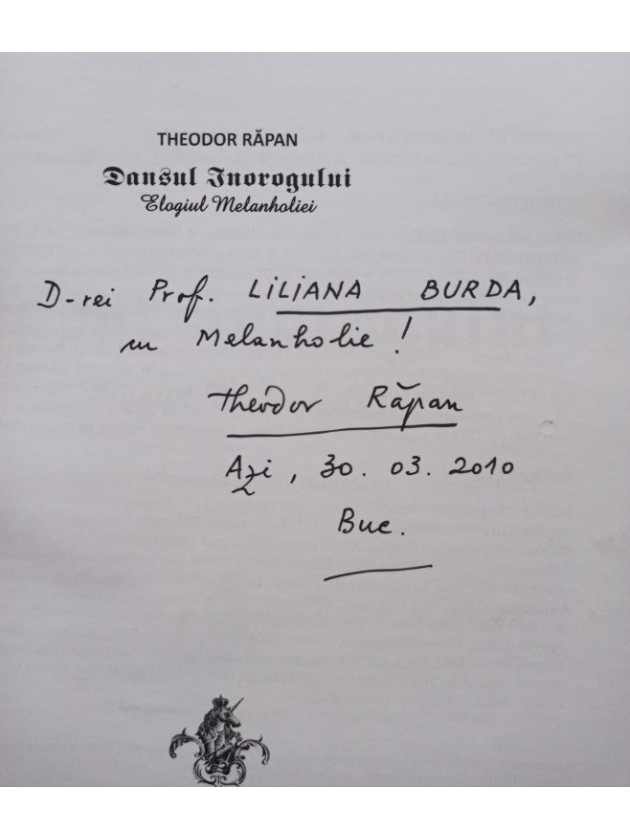 THEODOR RĂPAN
Dansul Inorogului
Elogiul Melanholiei
D-rei Prof. LILIANA BURDA,
cu Melanholie!
Theodor Răpan
Azi, 30. 03. 2010
Buc.